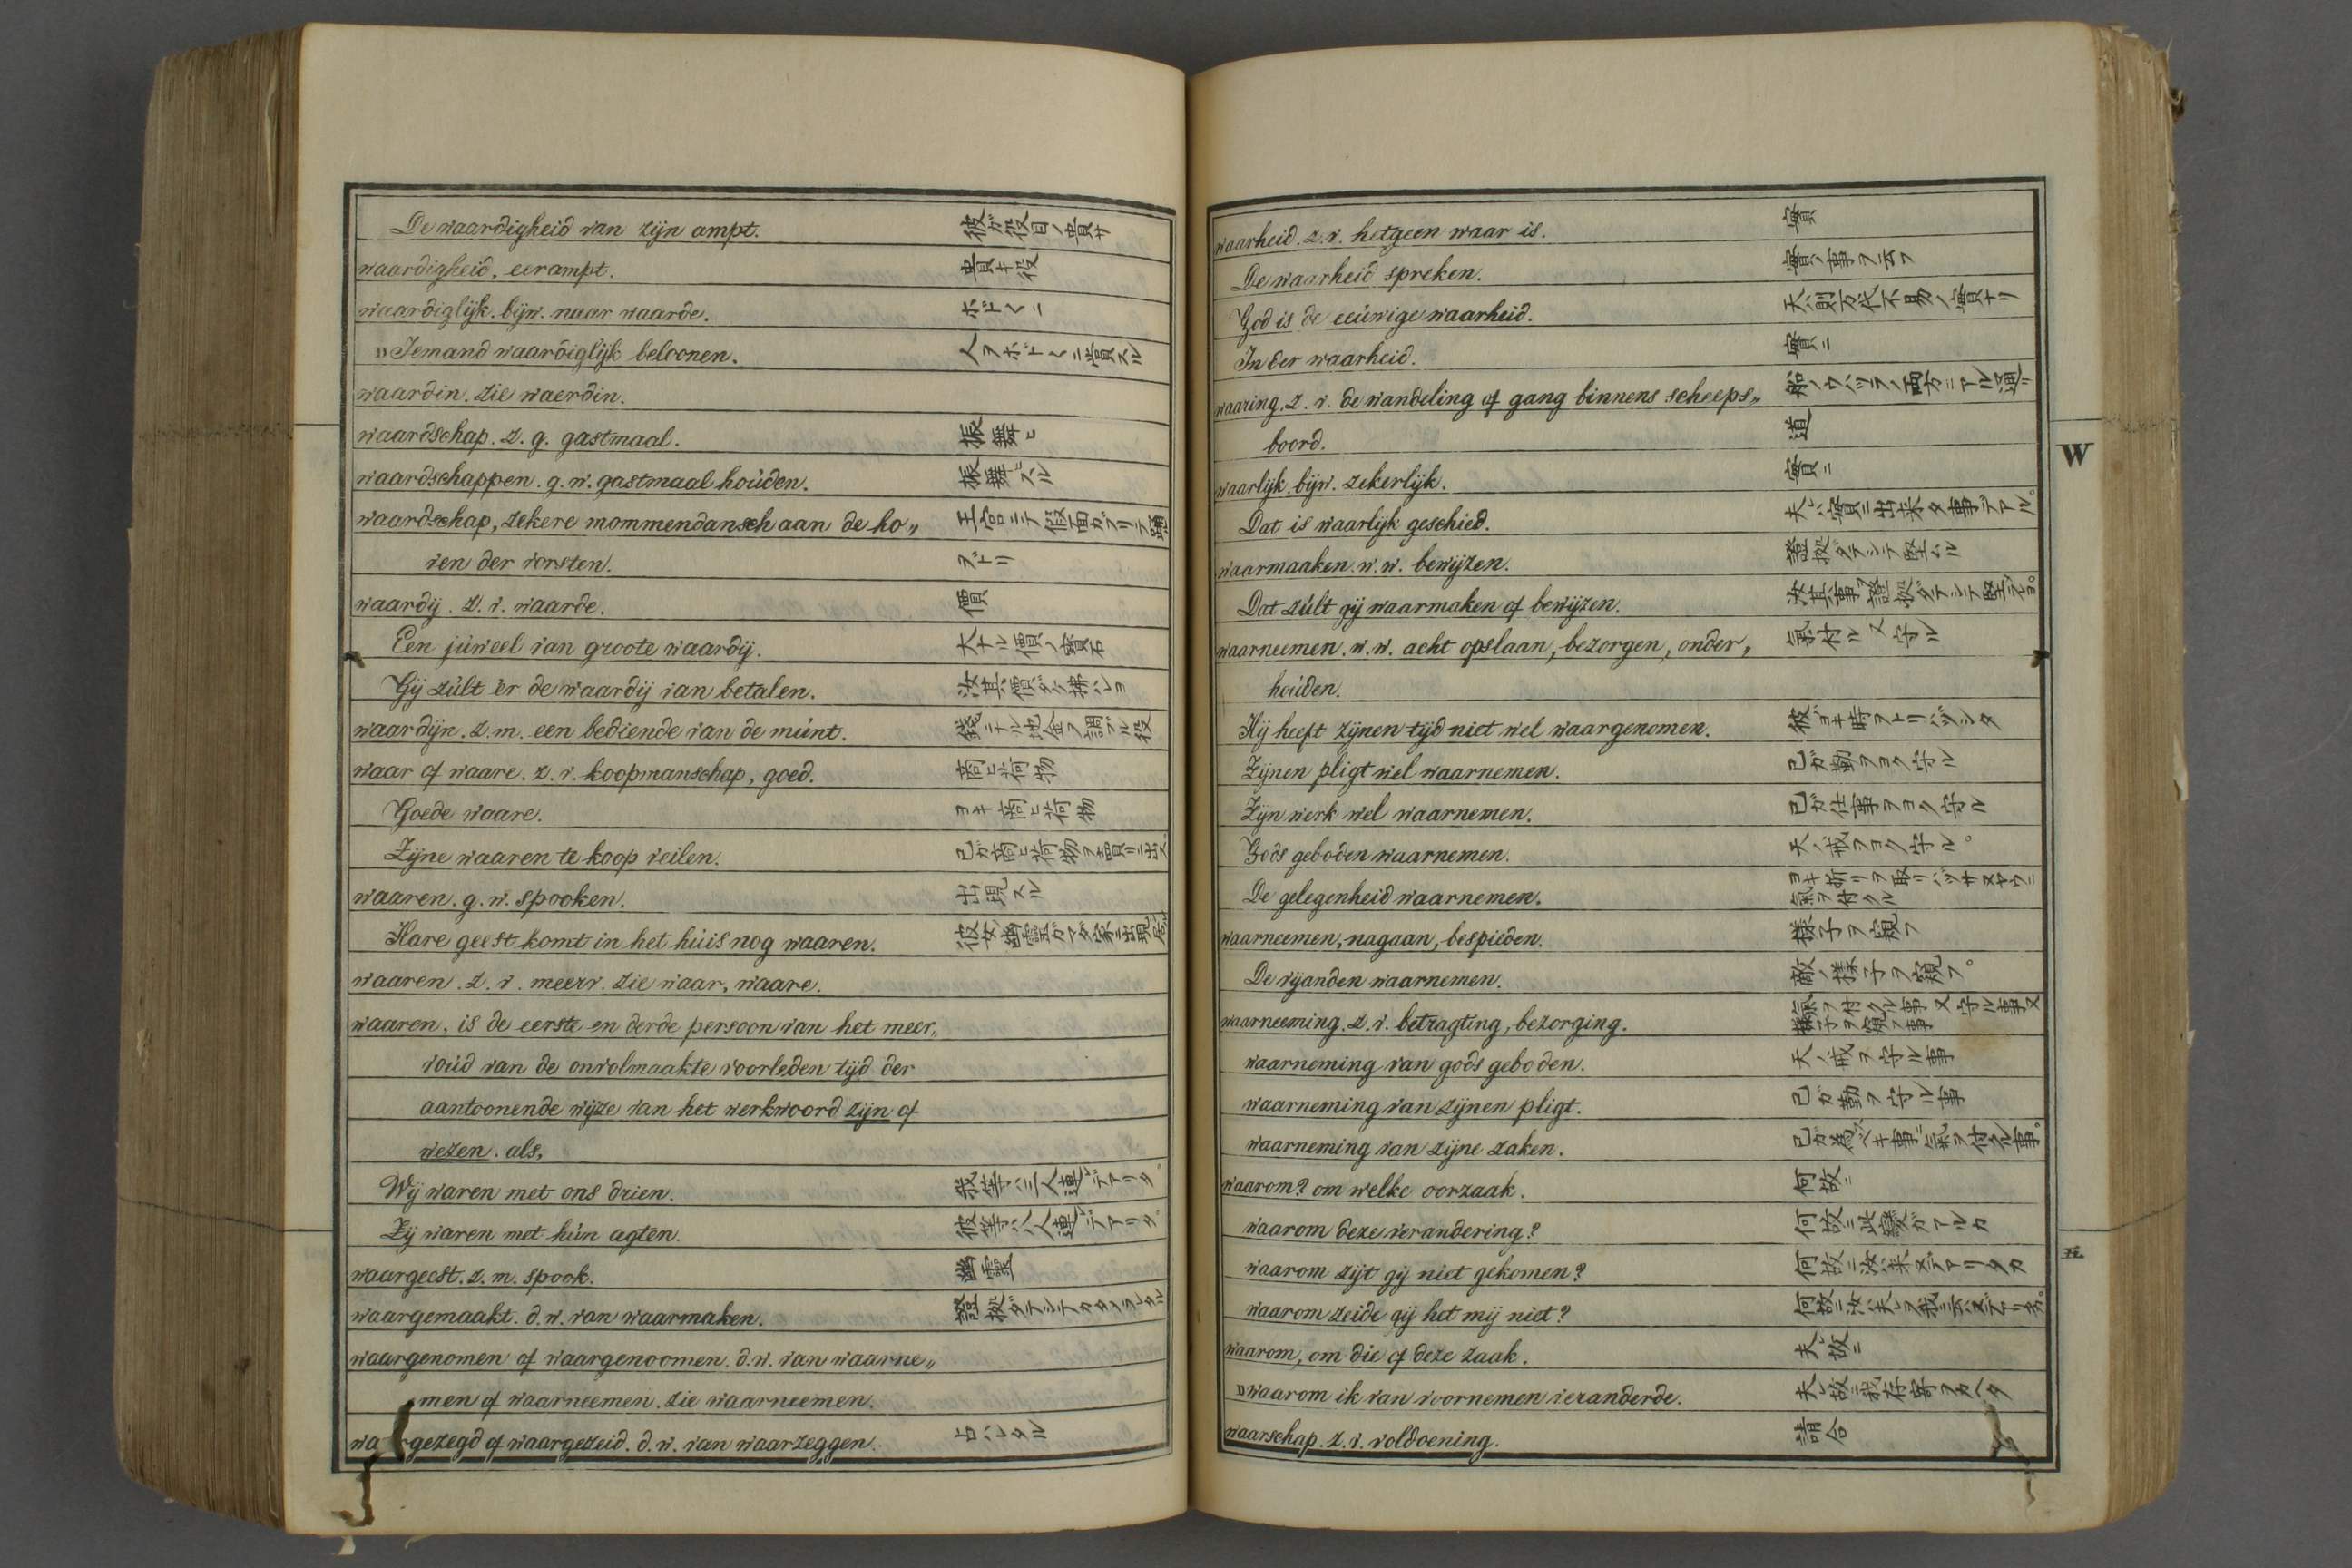 De waardigheid van zijn ampt. 彼ガ役目ノ貴サ
waardigheid, eerampt. 貴キ役
waardiglijk. bijw. naar waarde. ホドく二
Iemand waardiglijk beloonen. 人ヲホドく二賞スル
waardin. zie waerdin.
waardschap. z. g. gastmaal. 振舞ヒ
waardschappen. g. w. gastmaal hoúden. 振舞スル
waardschap, zekere mommendansch aan de ho„ 王宮ニテ假面ガブリテ踊
ven der vorsten. ヲドリ
waardij. z. v. waarde. 價
Een júweel van groote waardij. 大ナル價ノ寳石
Gij zúlt er de waardij van betalen. 汝其價ダケ拂ハレヨ
waardijn. z. m. een bediende van de múnt. 錢ニナル地金ヲ調ブル役
waar of waare. z. v. koopmanschap, goed. 商ヒ荷物
Goede waare. ヨキ商ヒ荷物
Zijne waaren te koop veilen. 己ガ商ヒ荷物ヲ賣リニ出ス
waaren. g. w. spooken. 出現スル
Hare geest komt in het húis nog waaren.
waaren. z. v. meerv. zie waar, waare.
waaren, is de eerste en derde persoon van het meer„
voúd van de onvolmaakte voorleden tijd der
aantoonende wijze van het werkwoord zijn of
wezen. als,
Wij waren met ons drien. 我等ハ三人連デアリタ。
Zij waren met hún agten. 彼等ハ八人連デアリタ。
waargeest. z. m. spook. 幽靈
waargemaakt. d. w. van waarmaken.
waargenomen of waargenoomen. d. w. van waarne„
men of waarneemen. zie waarneemen.
waargezegd of waargezeid. d. w. van waarzeggen. 占ハレタル
waarheid. z. v. hetgeen waar is. 實
De waarheid spreken. 實ノ事ヲ云フ
God is de eeúwige waarheid. 天ハ則万代不易ノ實ナリ
In der waarheid. 實ニ
waaring. z. v. de wandeling of gang binnens scheeps„ 船ノウハツラノ両方ニアル通リ
boord. 道
waarlijk. bijw. zekerlijk. 實ニ
Dat is waarlijk geschied. 夫ハ實ニ出来タ事デアル。
waarmaaken. w. w. bewijzen. 證拠ダテシテ堅ムル
Dat zúlt gij waarmaken of bewijzen.
waarneemen. w. w. acht opslaan, bezorgen, onder„ 氣ヲ付ル 又 守ル
hoúden.
Hij heeft zijnen tijd niet wel waargenomen. 彼ハヨキ時ヲトリハヅシタ
Zijnen pligt wel waarnemen. 己ガ勤ヲヨク守ル
Zijn werk wel waarnemen. 己ガ仕事ヲヨク守ル
Gods geboden waarnemen. 天ノ戒ヲヨク守ル。
De gelegenheid waarnemen. ヨキ折リヲ取リハヅサヌヤウニ
氣ヲ付クル
waarneemen, nagaan, bespieden. 様子ヲ窺フ
De vijanden waarnemen. 敵ノ様子ヲ窺フ。
waarneeming. z. v. betragting, bezorging. 氣ヲ付クル事 又 守ル事 又
様子ヲ窺フ事
waarneming van gods geboden. 天ノ戒ヲ守ル事
waarneming van zijnen pligt. 己ガ勤ヲ守ル事
waarneming van zijne zaken. 己ガ為スベキ事ニ氣ヲ付クル事。
waarom? om welke oorzaak. 何故ニ
waarom deze verandering? 何故ニ此變ガアルカ
waarom zijt gij niet gekomen? 何故ニ汝ハ来ズアリタカ
waarom zeide gij het mij niet?
waarom, om die of deze zaak. 夫レ故ニ
waarom ik van voornemen veranderde. 夫レ故ニ我存寄ヲカヘタ
waarschap. z. v. voldoening. 請合
W
五